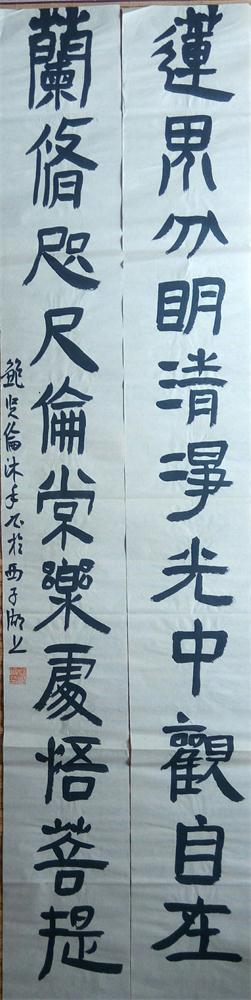 蓮界分明清淨光中觀自在
蘭脩咫尺倫常樂處悟菩提
鮑賢倫沐手書於西子湖上